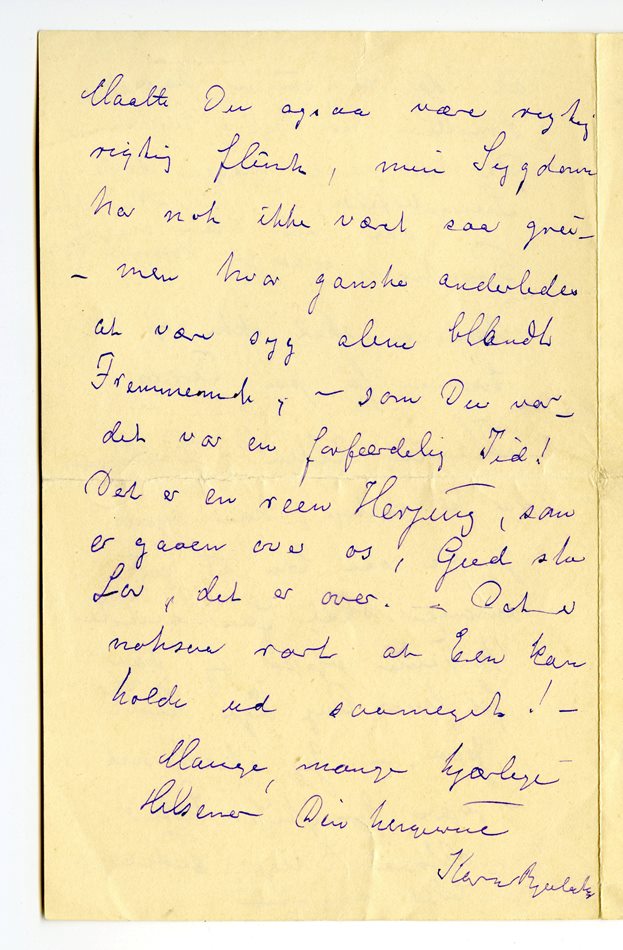 Maatte Du ogsaa være rigtig
rigtig flink, min Sygdom
har nok ikke været saa grei –
– men hvor ganske anderledes
at være syg alene blandt
Fremmende, – som Du var –
det var en forfærdelig Tid!
Det er en reen Herjung, som
er gaaen over os, Gud ske
Lov, det er over. – Det er
noksaa rart at Een kan
holde ud saameget! –
Mange, mange kjærlige
Hilsener Din hengivne